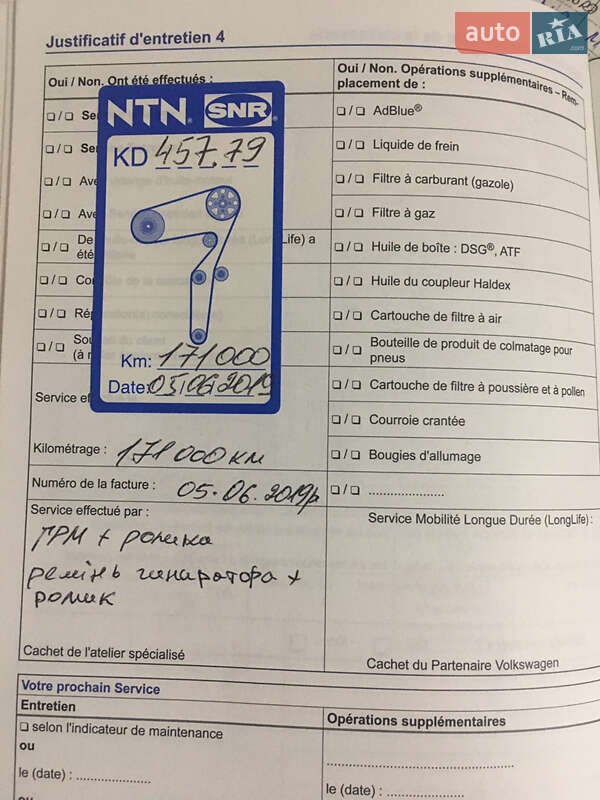 auto RIA .com
Justificatif d'entretien 4
Oui / Non. Ont été effectués :
❏ / ❏ Se
❏ / ❏ Se
❏ / ❏ Ave
❏ / ❏ Ave
❏ / ❏ De
été
❏ / ❏ Co
❏ / ❏ Ré
❏ / ❏ So
(à
NTN® SNR®
KD 457.79
Km: 171000
Date: 05 06 2019
Service e
Kilométrage : 171 000 км
Numéro de la facture : 05.06.2019р
Service effectué par :
ГРМ + ролики
ремінь гинаратора +
ролик
Cachet de l'atelier spécialisé
Oui / Non. Opérations supplémentaires – Rem-
placement de :
❏ / ❏ AdBlue®
❏ / ❏ Liquide de frein
❏ / ❏ Filtre à carburant (gazole)
❏ / ❏ Filtre à gaz
❏ / ❏ Huile de boîte : DSG®, ATF
❏ / ❏ Huile du coupleur Haldex
❏ / ❏ Cartouche de filtre à air
❏ / ❏ Bouteille de produit de colmatage pour
pneus
❏ / ❏ Cartouche de filtre à poussière et à pollen
❏ / ❏ Courroie crantée
❏ / ❏ Bougies d'allumage
❏ / ❏ ......................
Service Mobilité Longue Durée (LongLife) :
Cachet du Partenaire Volkswagen
Votre prochain Service
Entretien
❏ selon l'indicateur de maintenance
ou
le (date) : ......................
ou
Opérations supplémentaires
..............................................
le (date) : ......................